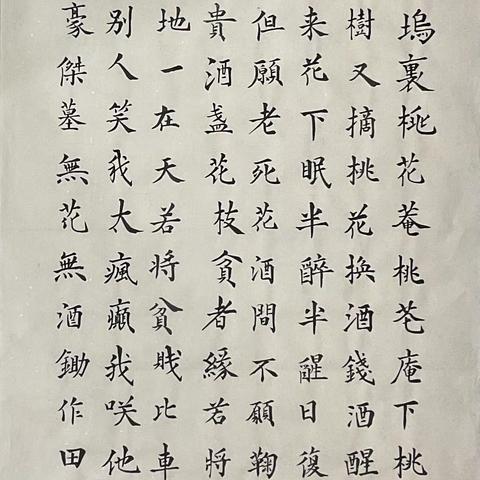 塢裏桃花菴桃花庵下桃
樹又摘桃花換酒錢酒醒
来花下眠半醉半醒日復
但願老死花酒間不願鞠
貴酒盞花枝貧者緣若將
地一在天若将貧賎比車
别人笑我太瘋癲我咲他
豪傑墓無花無酒鋤作田